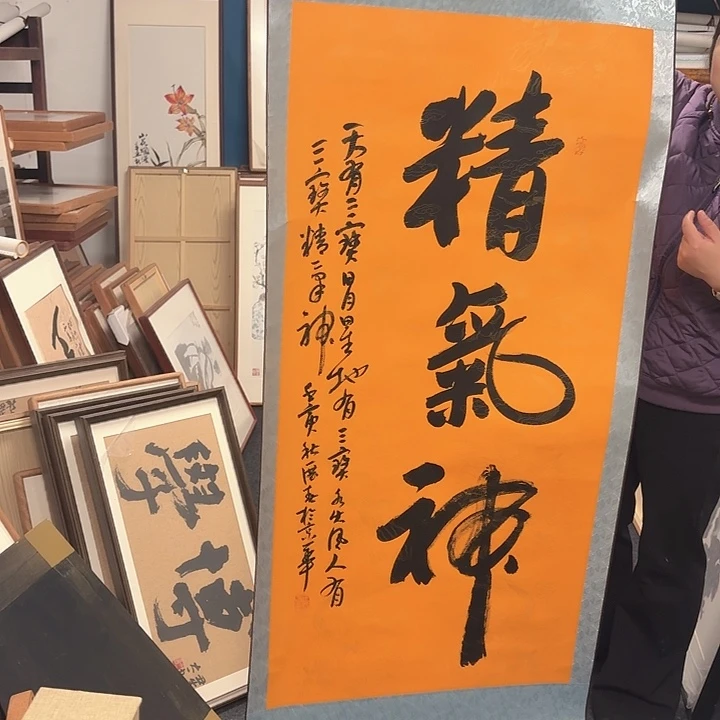 精氣神
天有三寳日月星地有三寳水火風人有
三寳精氣神
壬寅秋國
於京華
學博